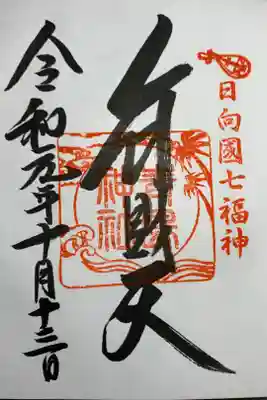 日向國七福神
弁財天
青島神社
令和元年十月十三日